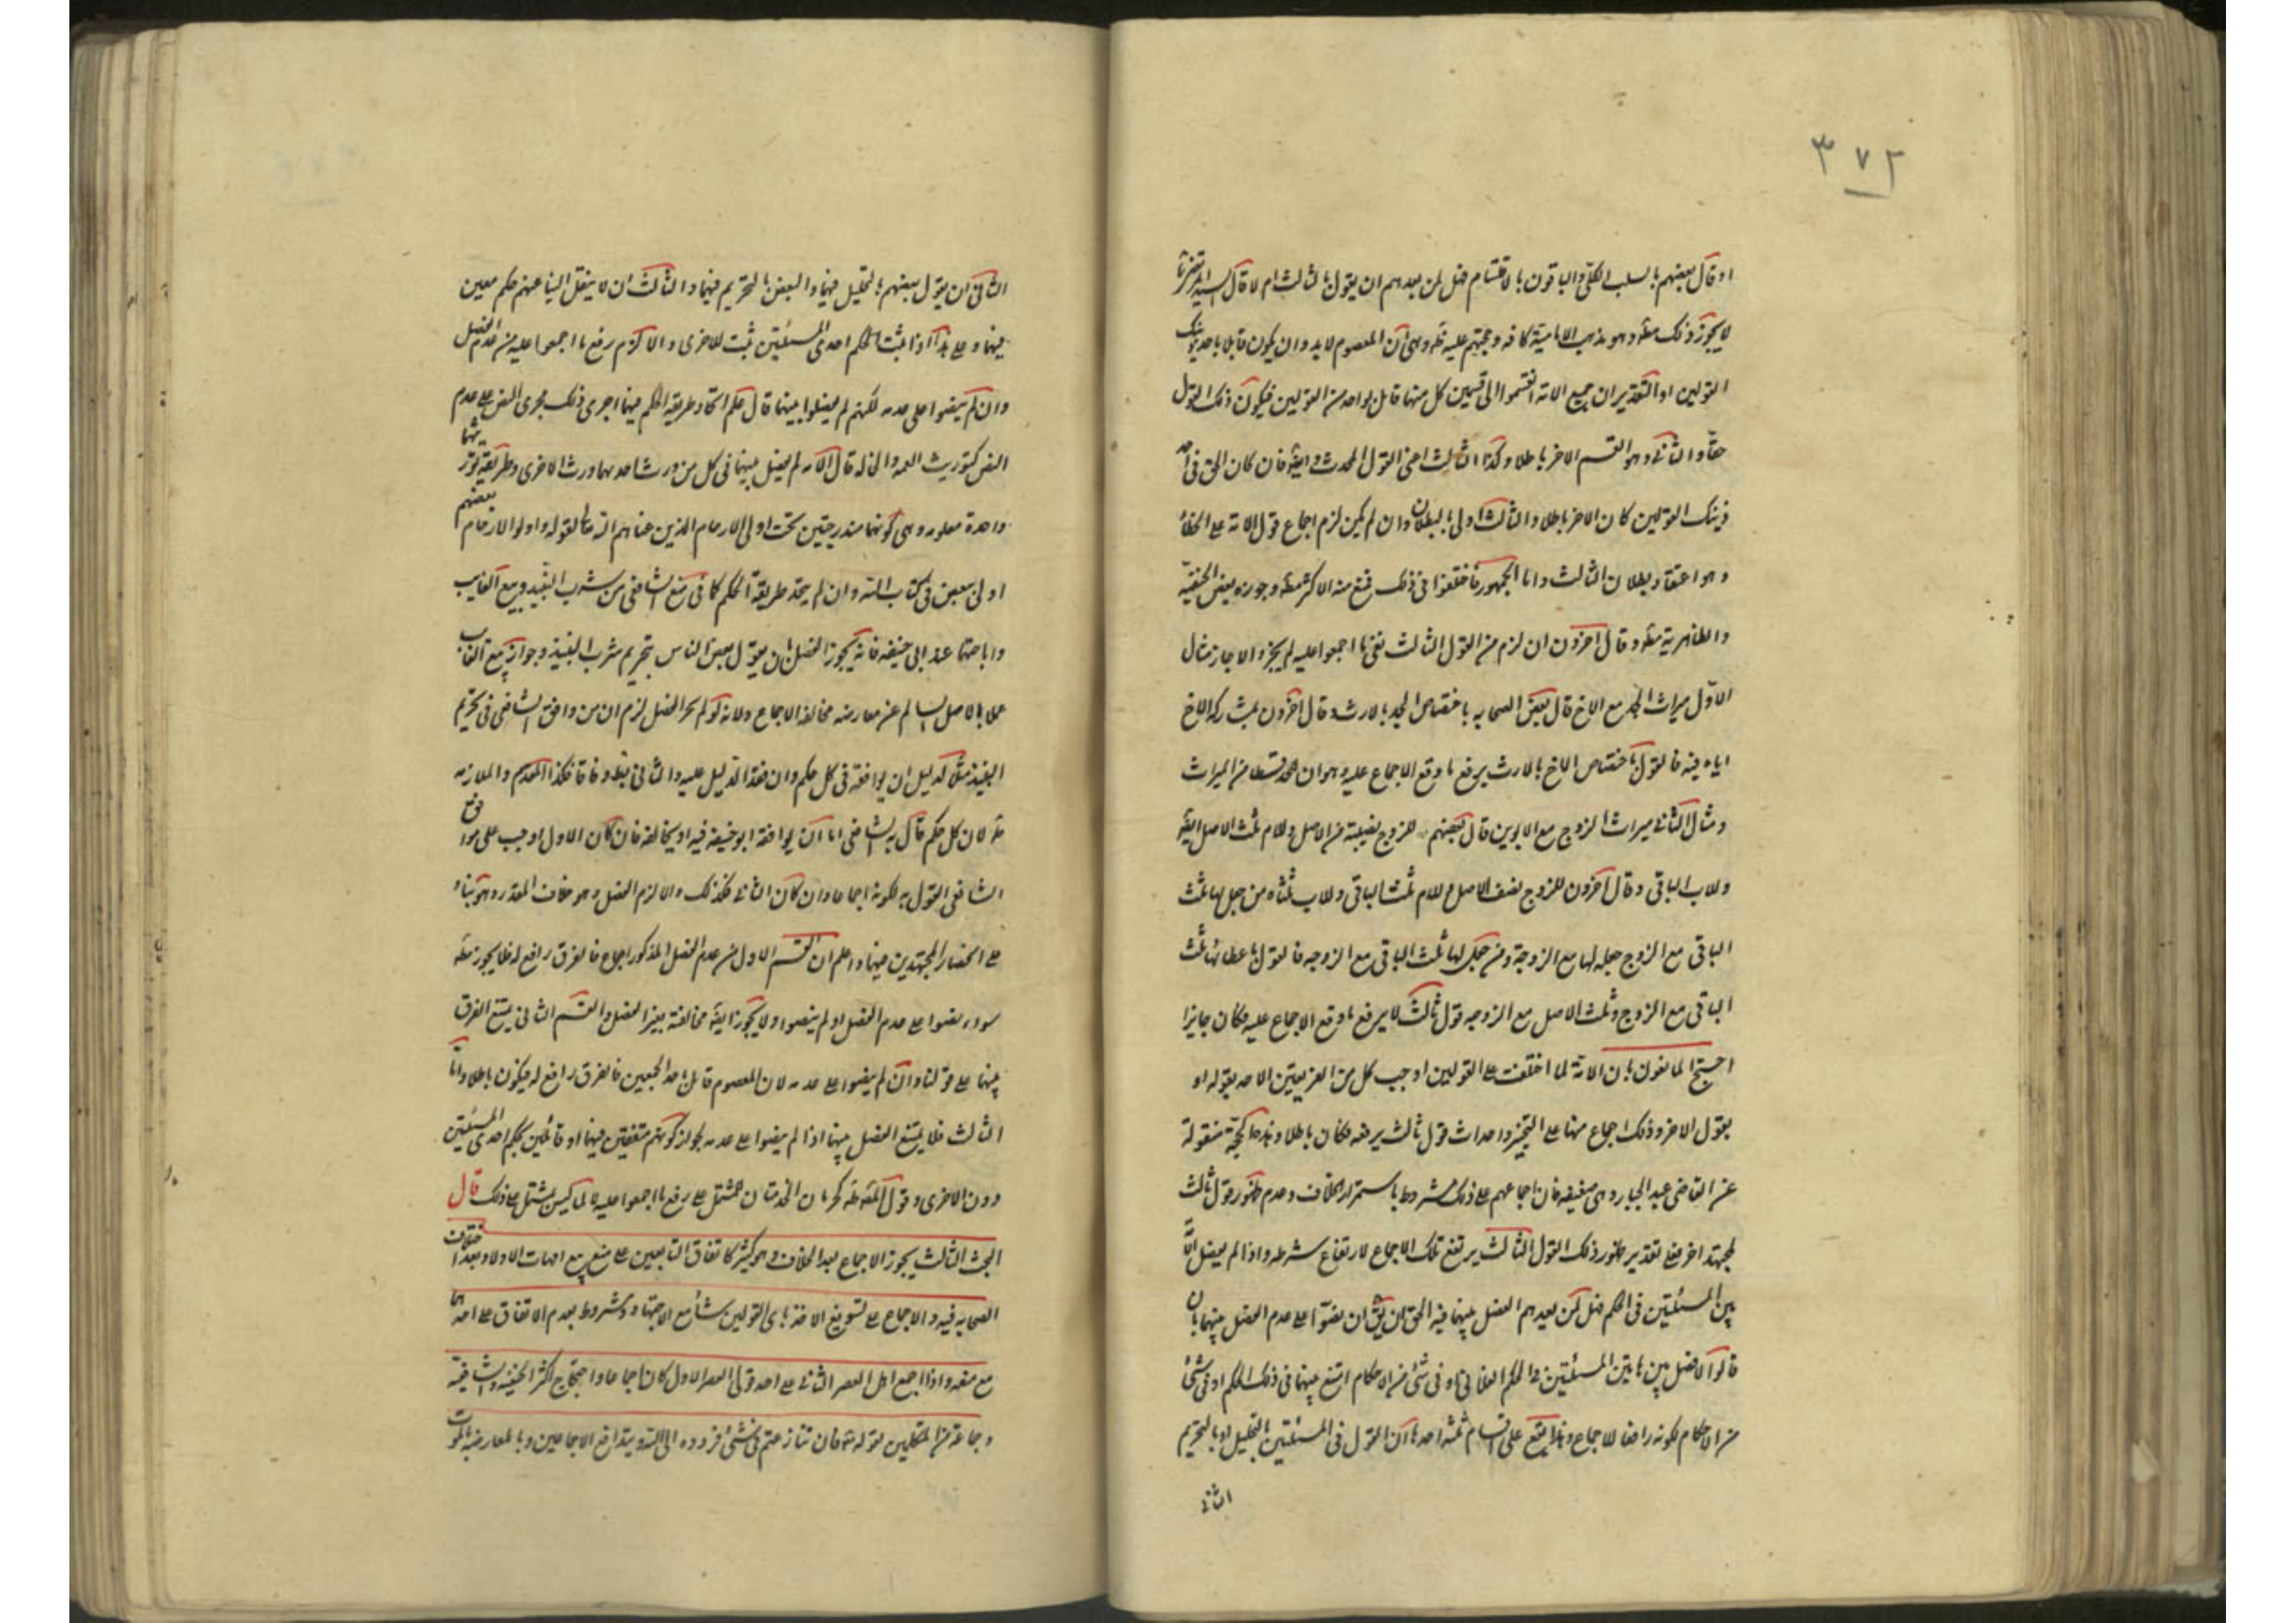 ٣٧٢
او قال بعضهم بالسلب الكلي والباقون بالاقتسام فهل لمن بعدهم ان يقول بالثالث ام لا قال السيد المرتضى
لا يجوز ذلك مطه وهو مذهب الامامية كافه وحجتهم عليه ظه وهي ان المعصوم لابد وان يكون قايلا باحد ذينك
القولين او التقدير ان جميع الامة انقسموا الى قسمين كل منهما قايل بواحد من القولين فيكون ذلك القول
حقا والثاني وهو القسم الاخر باطلا وكذا الثالث اعنى القول المحدث وايضه فان كان الحق في احد
ذينك القولين كان الاخر باطلا والثالث اولى بالبطلان وان لم يكن لزم اجماع قول الامة على الخطا
وهو اعتقاد بطلان الثالث واما الجمهور فاختلفوا في ذلك فمنع منه الاكثر مطه وجوزه بعض الحنفية
والظاهرية مطه وقال اخرون ان لزم من القول الثالث نفي ما اجمعوا عليه لم يجز والا جاز مثال
الاول ميراث الجد مع الاخ قال بعض الصحابه باختصاص الجد بالارث وقال اخرون بمشاركة الاخ
اياه فيه فالقول باختصاص الاخ بالارث يرفع ما وقع الاجماع عليه وهو ان للجد قسطا من الميراث
ومثال الثاني ميراث الزوج مع الابوين قال بعضهم للزوج نصيبه من الاصل وللام ثلث الاصل ايضه
وللاب الباقي وقال اخرون للزوج نصف الاصل وللام ثلث الباقي وللاب ثلثاه من جعل لها ثلث
الباقي مع الزوج جعله لها مع الزوجة ومن جعل لها ثلث الباقي مع الزوجه فالقول باعطائها ثلث
الباقي مع الزوج وثلث الاصل مع الزوجه قول ثالث لا يرفع ما وقع الاجماع عليه فكان جايزا
احتج المانعون بان الامة لما اختلفت على القولين اوجب كل من الفريقين الاخذ بقوله او
بقول الاخر وذلك اجماع منها على التخيير واحداث قول ثالث يرفعه فكان باطلا وهذه الحجة منقولة
عن القاضي عبد الجبار وهي ضعيفه فان اجماعهم على ذلك مشروط باستمرار الخلاف وعدم ظهور قول ثالث
لمجتهد اخر فعلى تقدير ظهور ذلك القول الثالث يرتفع تلك الاجماع لارتفاع شرطه واذا لم يفصل الامة
بين المسئلتين في الحكم فهل لمن بعدهم الفصل بينهما فيه الحق ان يق ان نصوا على عدم الفصل بينهما بان
قالوا لا فصل بين هاتين المسئلتين في الحكم الفلاني او في شئ من الاحكام امتنع بينهما في ذلك الحكم او في شئ
من الاحكام لكونه رافعا للاجماع وهذا يقع على اقسام ثلثه احدها ان القول في المسئلتين بالتحليل او بالتحريم
الثاني
الثاني ان يقول بعضهم بالتحليل فيهما والبعض بالتحريم فيهما والثالث ان لا ينقل الينا عنهم حكم معين
فيهما وعلى هذا اذا ثبت الحكم احدى المسئلتين ثبت للاخرى والا لزم رفع ما اجمعوا عليه من عدم الفصل
وان لم ينصوا على عدمه لكنهم لم يفصلوا بينهما قال علم اتحاد طريقة الحكم فيهما اجرى ذلك مجرى النص على عدم
النص كتوريث العمه والخاله قال الامه لم يفصل بينهما في كل من ورث احدهما ورث الاخرى وطريقة توريثهما
واحدة معلومه وهي كونهما مندرجتين تحت اولى الارحام الذين عناهم الله تعالى بقوله واولوا الارحام بعضهم
اولى ببعض في كتاب الله وان لم يتحد طريقة الحكم كما في منع الشافعي من شرب النبيذ وبيع الغايب
واباحتهما عند ابي حنيفه فانه يجوز الفصل بان يقول بعض الناس بتحريم شرب النبيذ وجواز بيع الغايب
عملا بالاصل السالم عن معارضه مخالفه الاجماع ولانه لو لم يجز الفصل لزم ان من وافق الشافعي في تحريم
النبيذ مثلا لدليل ان يوافقه في كل حكم وان فقد الدليل عليه والثاني بط وفاقا فكذا المقدم والملازمه
ظه لان كل حكم قال به الشافعي اما ان يوافقه ابو حنيفه فيه او يخالفه فان كان الاول اوجب على موافق
الشافعي القول به لكونه اجماعا وان كان الثاني فكذلك والا لزم الفصل وهو خلاف المقدر وهو بناء
على انحصار المجتهدين فيهما واعلم ان القسم الاول من عدم الفصل المذكور اجماع فالفرق رافع له فلا يجوز مطه
سواء نصوا على عدم الفصل او لم ينصوا ولا يجوز ايضه مخالفته بغير الفصل والقسم الثاني يمتنع الفرق
بينهما على قولنا وان لم ينصوا على عدمه لان المعصوم قايل باحد الجمعين فالفرق رافع له فيكون باطلا واما
الثالث فلا يمتنع الفصل بينهما اذا لم ينصوا على عدمه لجواز كونهم متفقين فيهما او قائلين بحكم احدى المسئلتين
دون الاخرى وقول المصنف طه كرمان الخدشان المشتمل على رفع ما اجمعوا عليه لا لما ليس يشتمل على ذلك قال
البحث الثالث يجوز الاجماع بعد الخلاف وهو كثير كاتفاق التابعين على منع بيع امهات الاولاد بعد اختلاف
الصحابه فيه والاجماع على تسويغ الاخذ باي القولين شاء مع الاجتهاد مشروط بعدم الاتفاق على احدهما
مع منعه واذا اجمع اهل العصر الثاني على احد قولي العصر الاول كان اجماعا واحتجاج اكثر الحنفيه والشافعية
وجماعة من المتكلمين بقوله تعه فان تنازعتم في شئ فردوه الى الله وبتدافع الاجماعين وبالمعارضه بالموت